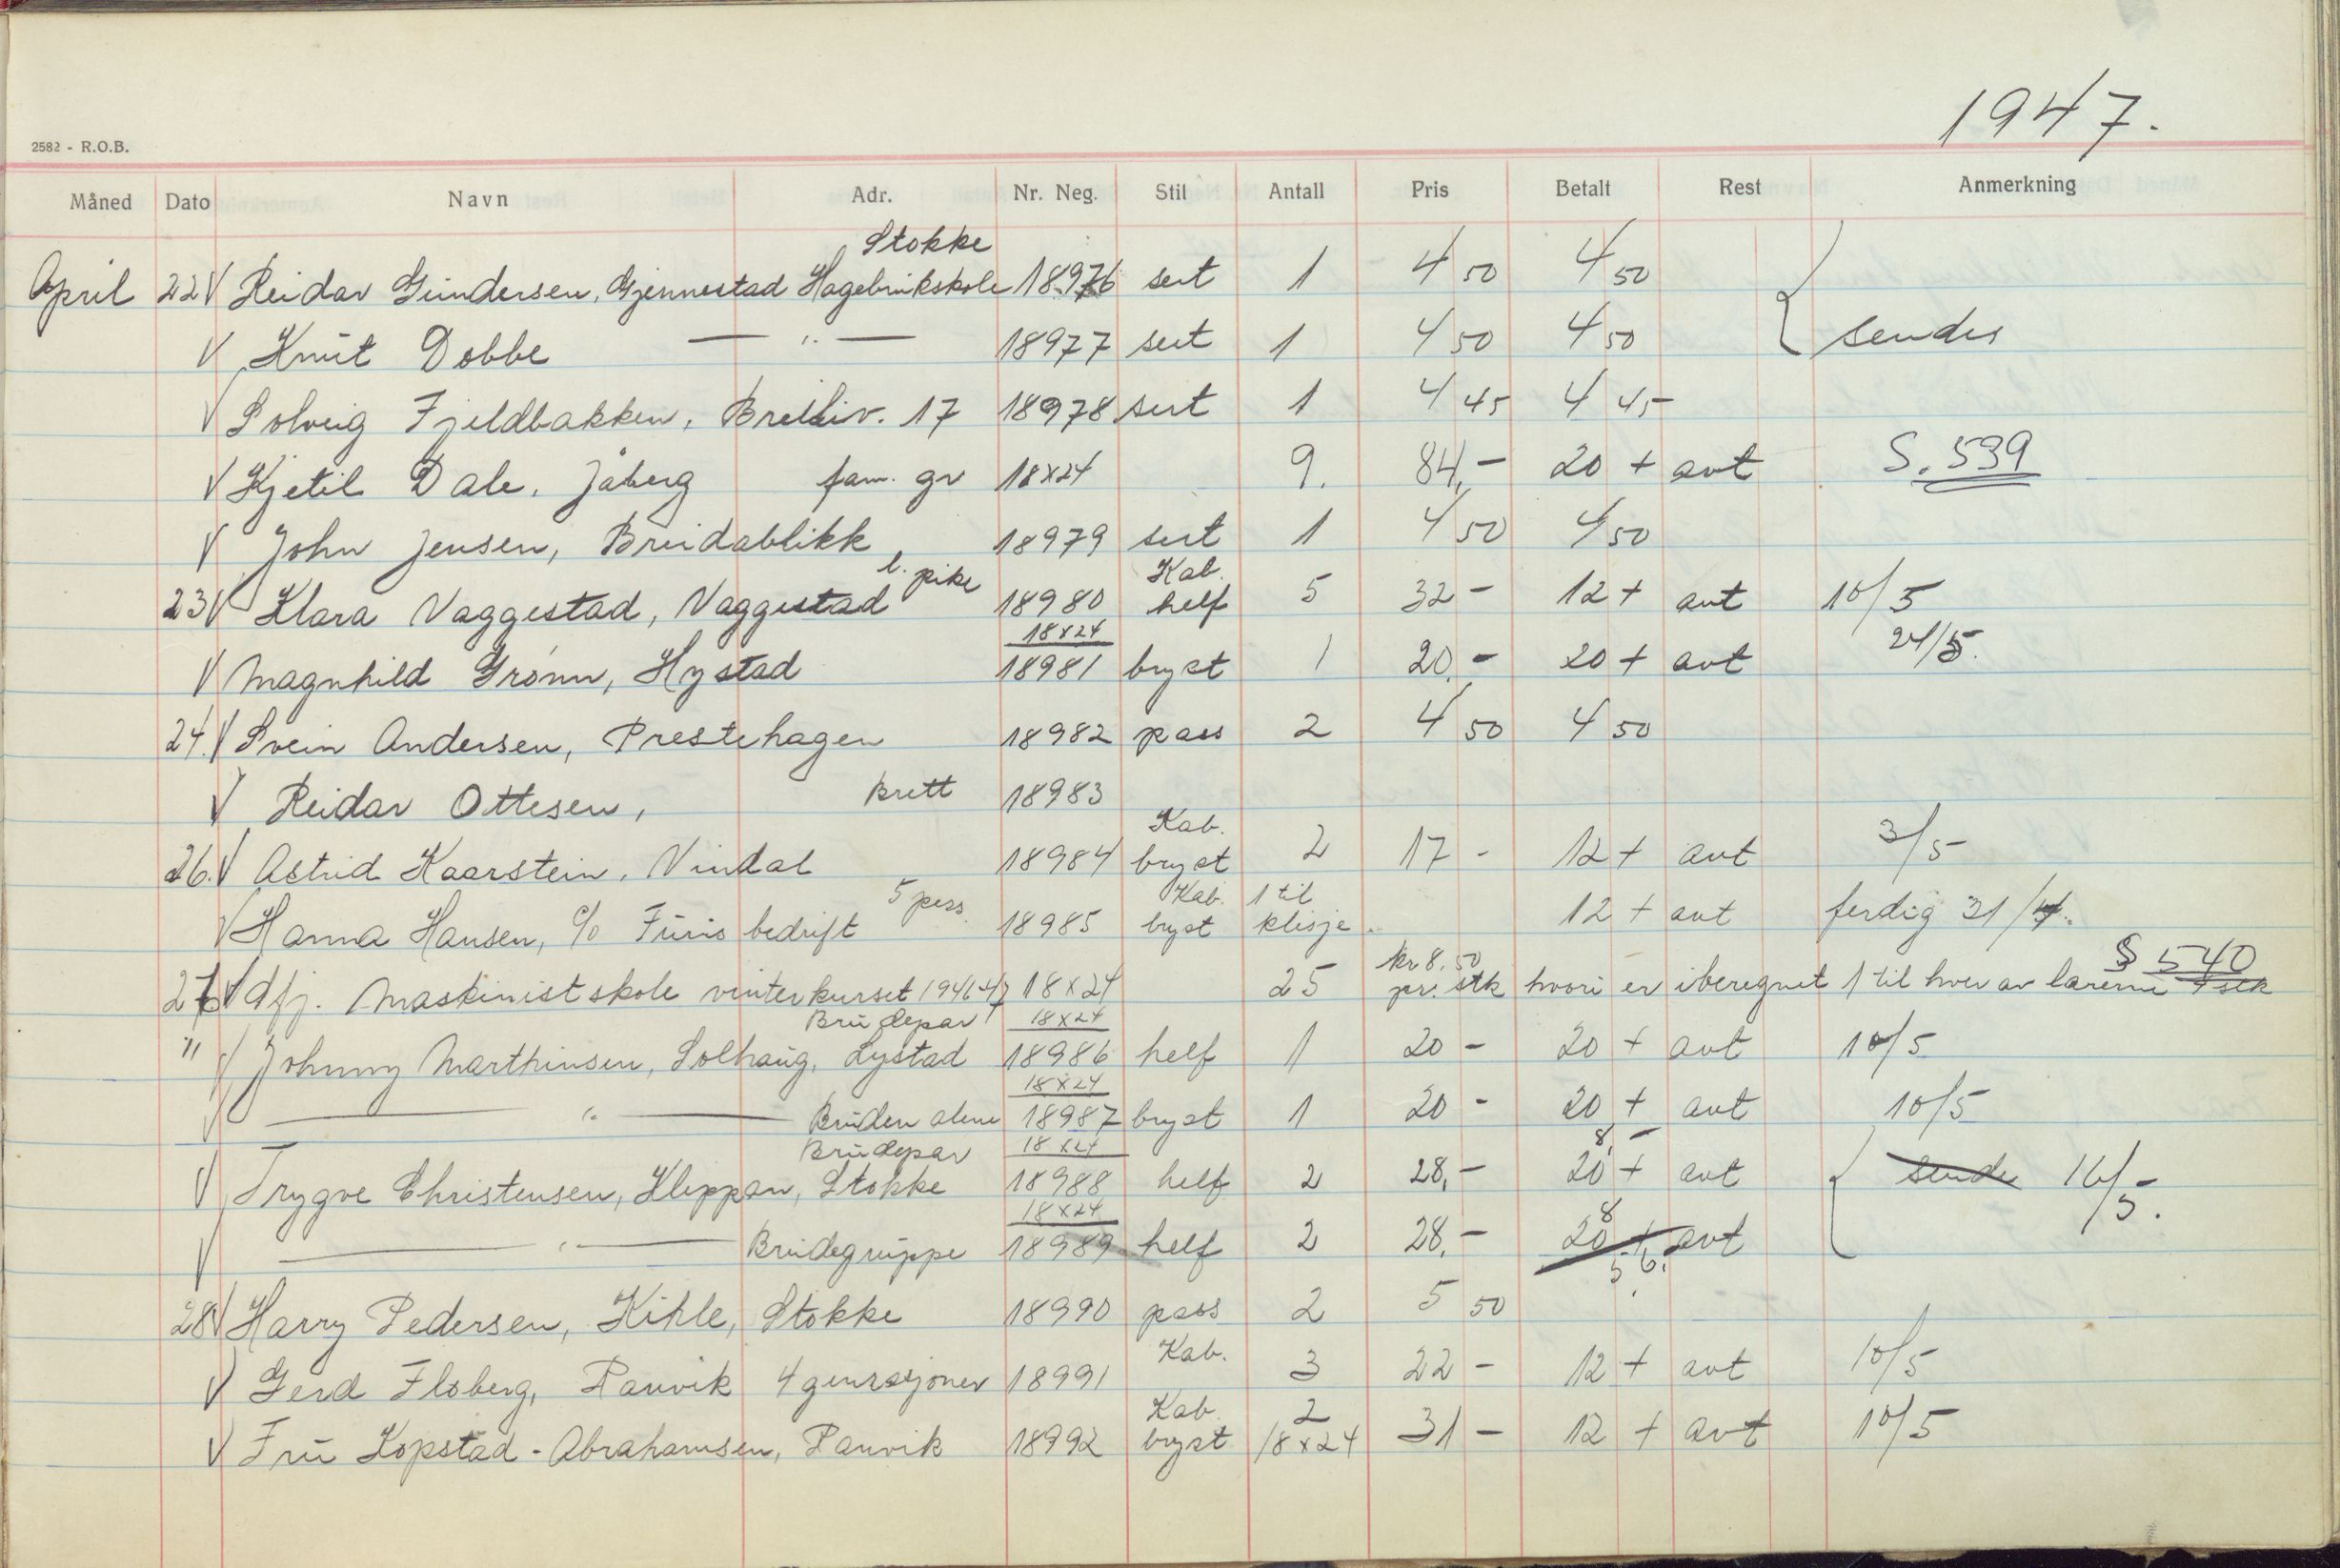 1947.
2582 - R.O.B.
Måned Dato Navn Adr. Nr. Neg. Stil Antall Pris Betalt Rest Anmerkning
Stokke
April 22 V Reidar Gundersen, Gjennestad Hagebrukskole 18976 sert 1 4 50 4 50
V Knut Dobbe — " — 18977 sert 1 4 50 4 50 sendes
V Solveig Fjeldbakken, 17 18978 sert 1 4 45 4 45
V Kjetil Dale, Jåberg fam. gr 18x24 9. 84,- 20 + avt S. 539
V John Jensen, Breidablikk 18979 sert 1 4 50 4 50
l. pike Kab.
23 V Klara Vaggestad, Vaggestad 18980 helf 5 32 - 12 + avt 10/5
18x24
V Magnhild Grønn, Hystad 18981 bryst 1 20.- 20 + avt 24/5.
24. V Svein Andersen, Prestehagen 18982 pass 2 4 50 4 50
V Reidar Ottesen, Brett 18983
Kab.
26. V Astrid Kaarstein, Vindal 18984 bryst 2 17 - 12 + avt 3/5
5 pers. Kab. 1 til
V Hanna Hansen, c/o Furis bedrift 18985 bryst klisje. 12 + avt ferdig 31/4.
kr 8.50 S 540
27 V Sfj. Maskinistskole vinterkurset 1946-47 18x24 25 pr. stk hvori er iberegnet 1 til hver av lærerne 4 stk
Brudepar 18x24
" V Johnny Marthinsen, Solhaug, Lystad 18986 helf 1 20 - 20 + avt 10/5
18x24
V — " — Bruden alene 18987 bryst 1 20 - 20 + avt 10/5
Brudepar 18x24 8,-
V Trygve Christensen, Kleppan, Stokke 18988 helf 2 28,- 20 + avt sende 16/5.
18x24 8
V — " — Brudegruppe 18989 helf 2 28,- 20 + avt
5 6.
28 V Harry Pedersen, Kihle, Stokke 18990 pass 2 5 50
Kab.
V Gerd Floberg, Ranvik 4 generasjoner 18991 3 22 - 12 + avt 10/5
Kab. 2
V Fru Kopstad - Abrahamsen, Ranvik 18992 bryst 18x24 31 - 12 + avt 10/5